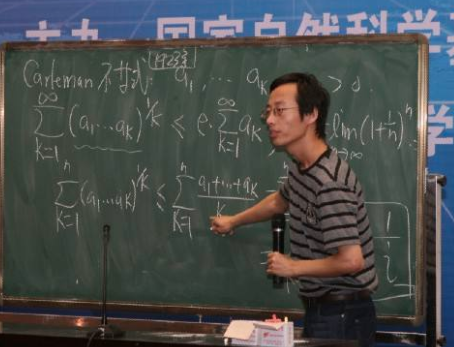 国家自然科学
学
Carleman 不等式: a₁, ... aₖ > 0.
∑_{k=1}^{∞} (a₁...aₖ)^{1/k} ≤ e·∑_{k=1}^{∞} aₖ, lim_{n→∞} (1+1/n)^n
∑_{k=1}^{n} (a₁...aₖ)^{1/k} ≤ ∑_{k=1}^{n} (a₁+...+aₖ)/k
1/i